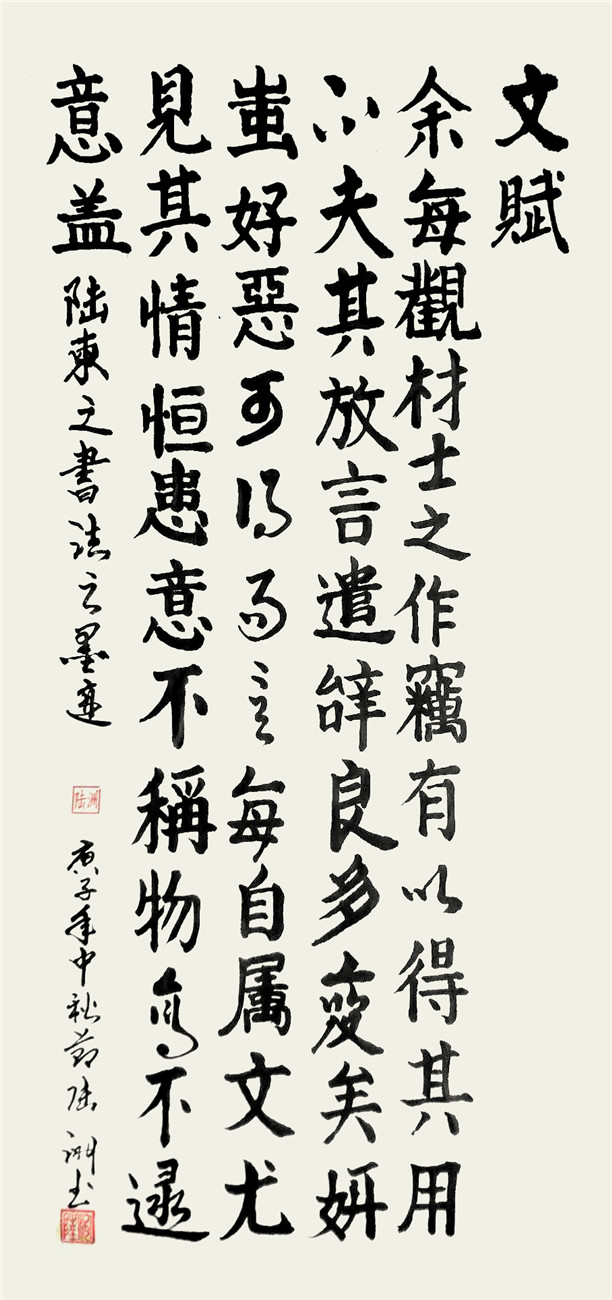 文賦
余每觀材士之作竊有以得其用
心夫其放言遣辭良多變矣妍
蚩好惡可得而言每自属文尤
見其情恒患意不稱物不逮
意盖
陆柬之書法之墨迹
陆洲
庚子年中秋節陆洲书